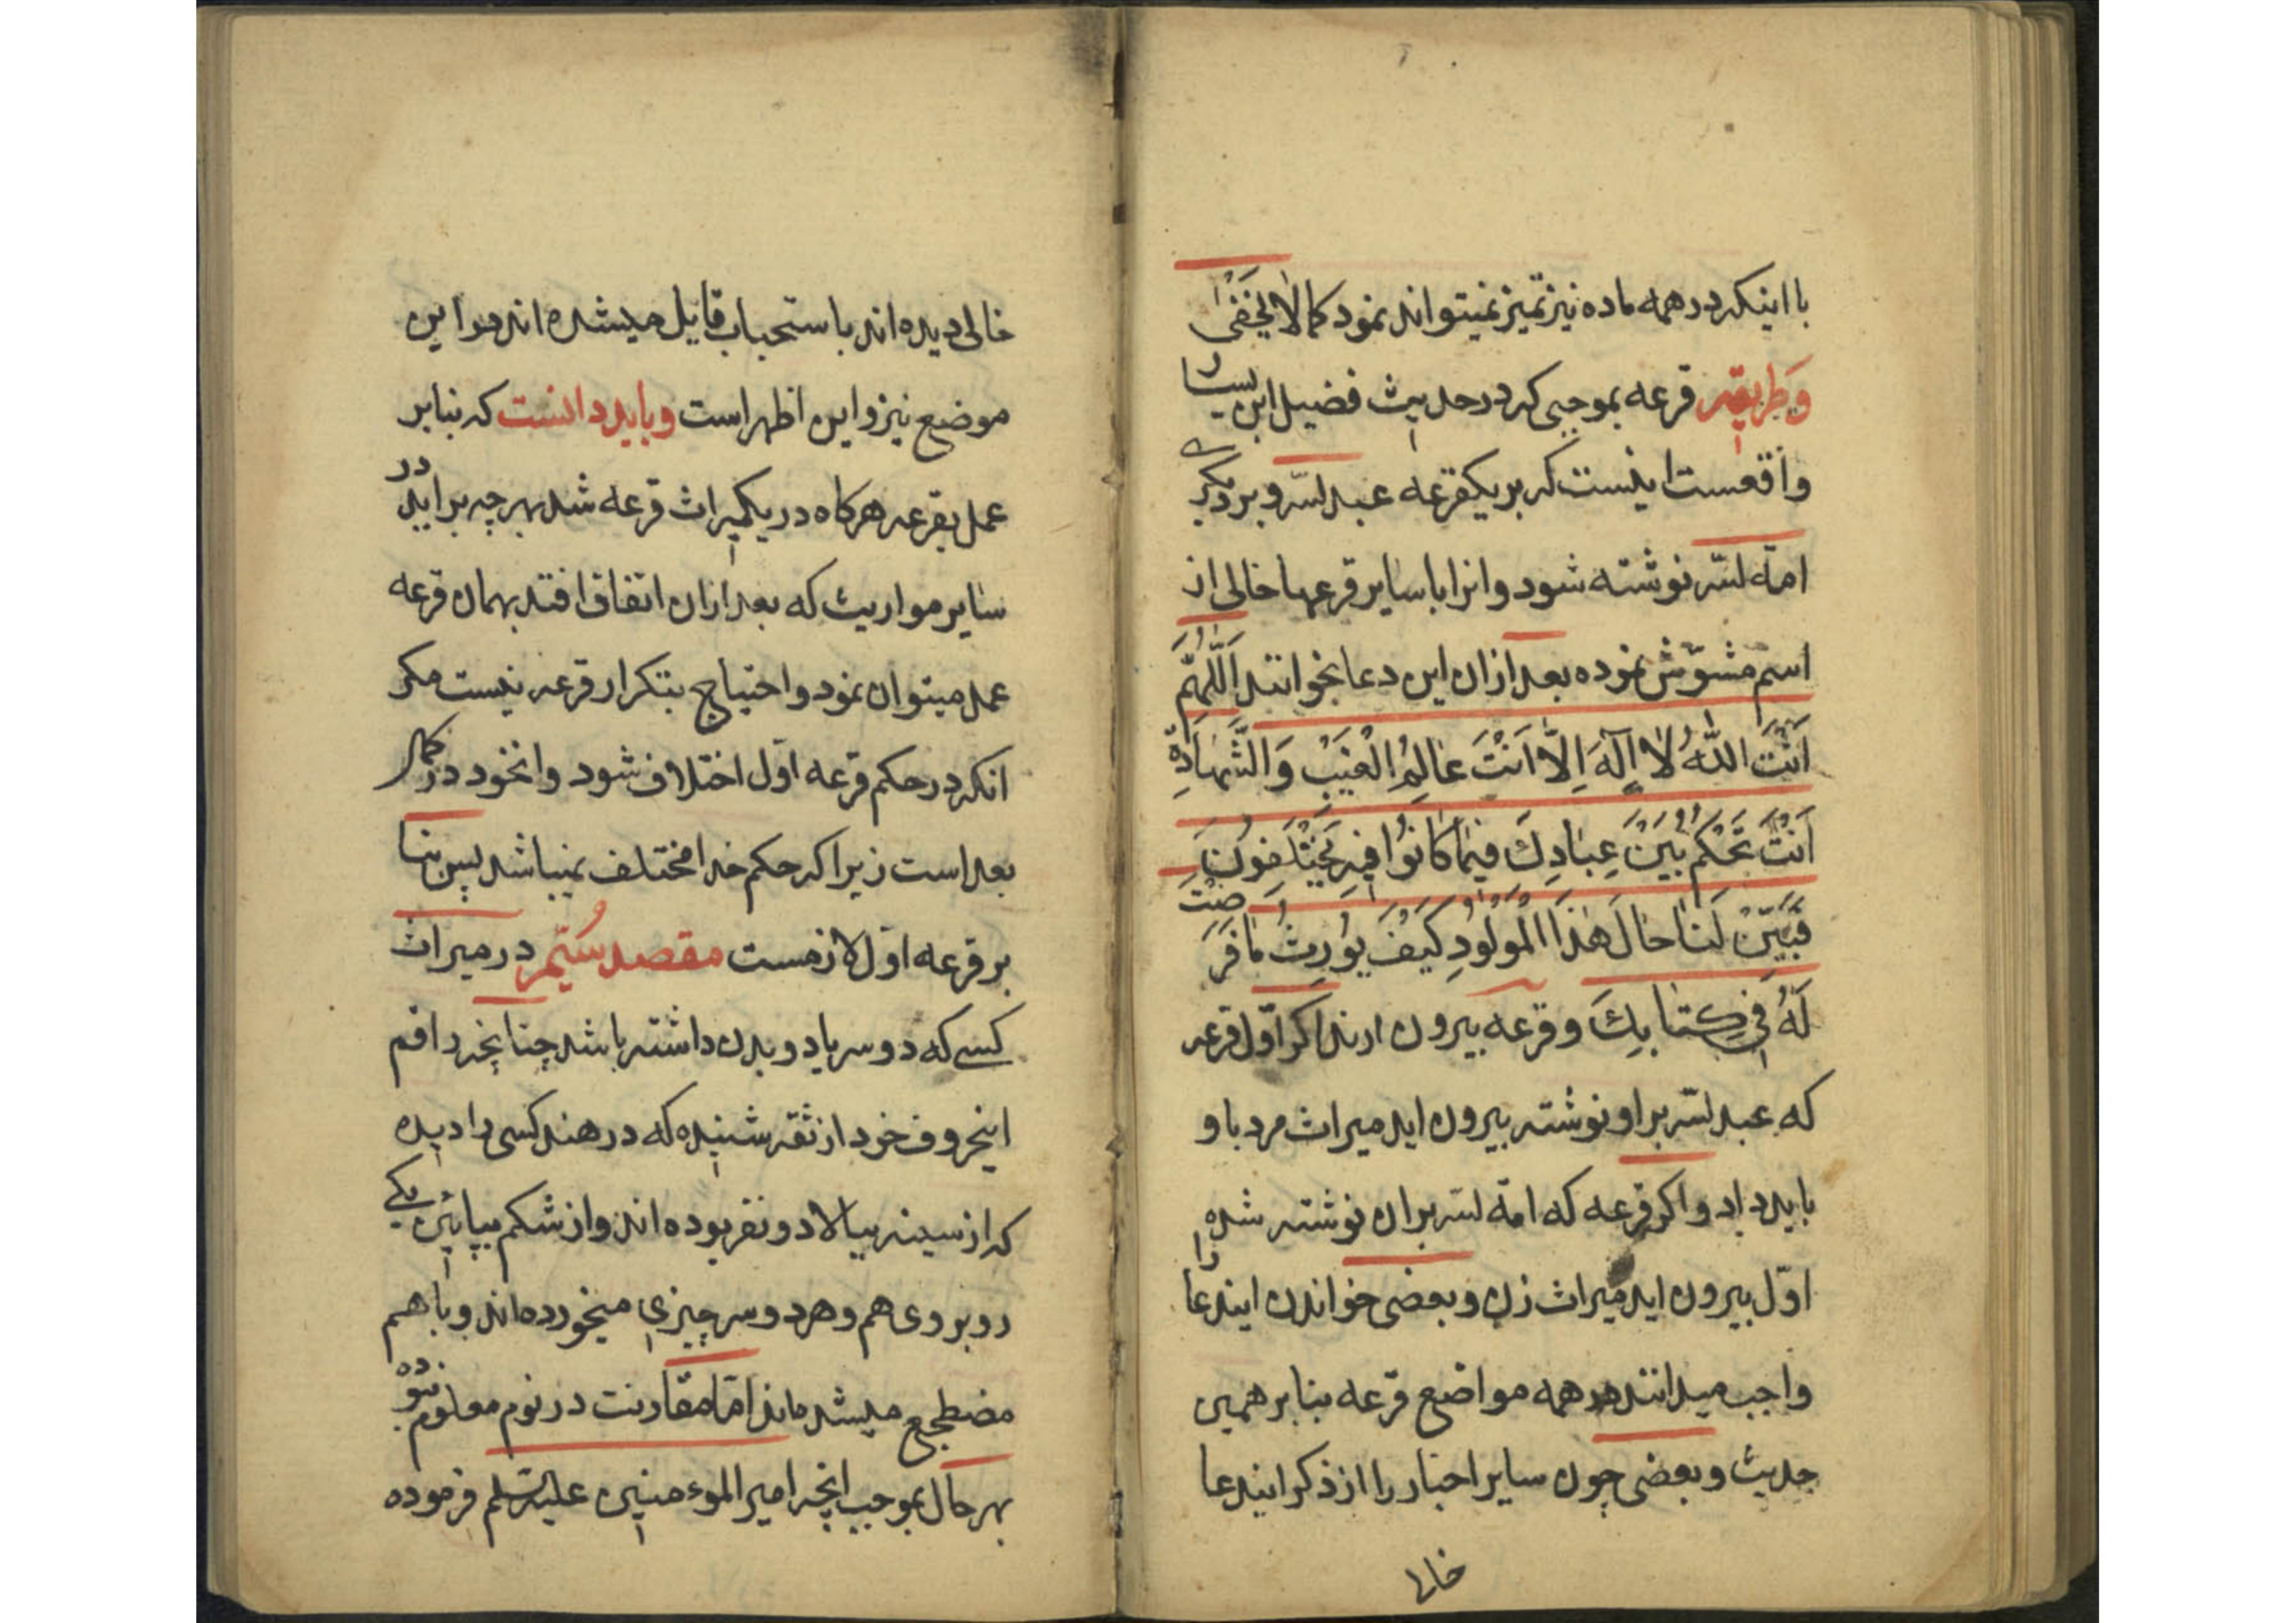 با اینکه در همه ماده نیز تمیز نمیتواند نمود کما لا یخفی
وطریقه قرعه بموجبی که در حدیث فضیل ابن یسار
واقعست اینست که بر یکقرعه عبدلله و بر دیگری
امةلله نوشته شود و انرا با سایر قرعها خالی از
اسم مشوّش نموده بعد ازان این دعا بخوانند اَللّٰهُمَّ
اَنْتَ اللّٰهُ لٰا اِلٰهَ اِلَّا اَنْتَ عٰالِمُ الْغَیْبِ وَالشَّهٰادَةِ
اَنْتَ تَحْکُمُ بَیْنَ عِبٰادِكَ فیمٰا کٰانُوا فیهِ یَخْتَلِفُونَ
فَبَیِّنْ لَنٰا حٰالَ هٰذَا الْمَوْلُودِ کَیْفَ یُوَرِثُ مٰا فَرَضْتَ
لَهُ فی کِتٰابِكَ و قرعه بیرون ارند اکر اوّل قرعه
که عبدلله بر او نوشته بیرون اید میراث مرد باو
باید داد و اکر قرعه که امةلله بران نوشته شده
اوّل بیرون اید میراث زن و بعضی خواندن ایندعا را
واجب میدانند در همه مواضع قرعه بنابر همین
حدیث و بعضی چون سایر اخبار را از ذکر ایندعا
خالی
خالی دیده‌اند باستحباب قایل میشده‌اند در این
موضع نیز و این اظهر است و باید دانست که بنابر
عمل بقرعه هرکاه در یکمیراث قرعه شد بهرچه براید در
سایر مواریث که بعد ازان اتفاق افتد بهمان قرعه
عمل میتوان نمود و احتیاج بتکرار قرعه نیست مکر
انکه در حکم قرعه اوّل اختلاف شود و انخود در کمال
بعد است زیرا که حکم خدا مختلف نمیباشد پس بنا
بر قرعه اوّل لازمست مقصد سُیّم در میراث
کسی که دو سر یا دو بدن داشته باشد چنانچه راقم
اینحروف خود از ثقه شنیده که در هند کسی را دیده
که از سینه ببالا دو نفر بوده‌اند و از شکم بپایین یکی
روبروی هم و هر دو سر چیزی میخورده‌اند و با هم
مضطجع میشده‌اند امّا مقارنت در نوم معلوم نبوده
بهر حال بموجب انچه امیر الموءمنین علیه‌السلم فرموده